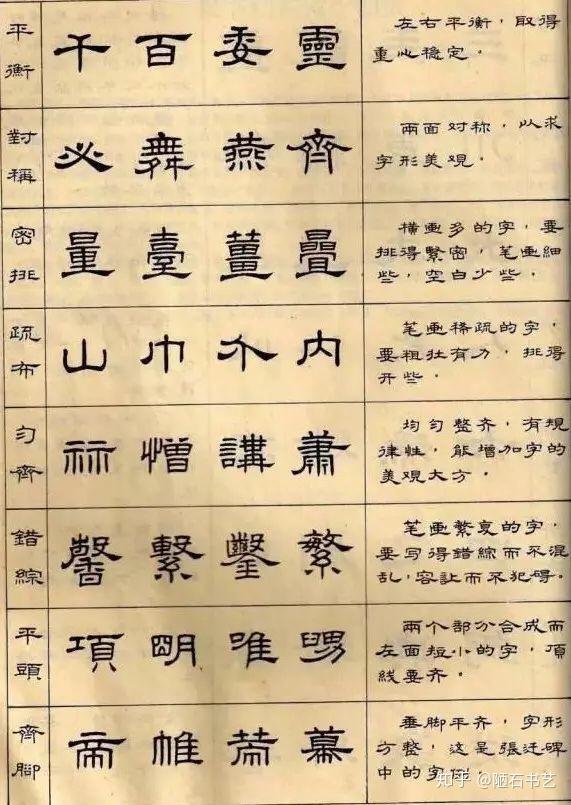 平衡
千百委靈
左右平衡，取得
重心稳定。
對稱
必舞燕齊
兩面对称，以求
字形美观。
密排
量臺薑疊
横画多的字，要
排得緊密，笔画細
些，空白少些。
疏布
山巾介内
笔画稀疏的字，
要粗壮有力，排得
开些。
匀齊
憎講蕭
均匀整齐，有規
律性，能增加字的
美观大方。
錯綜
馨繫鑿繁
笔画繁复的字，
要写得錯綜而不混
乱，容让而不犯碍。
平頭
項明唯
兩个部分合成而
左面短小的字，頂
线要齐。
齊腳
帝帷幕
垂脚平齐，字形
方整，这是張迁碑
中的字例。
知乎 @陋石书艺